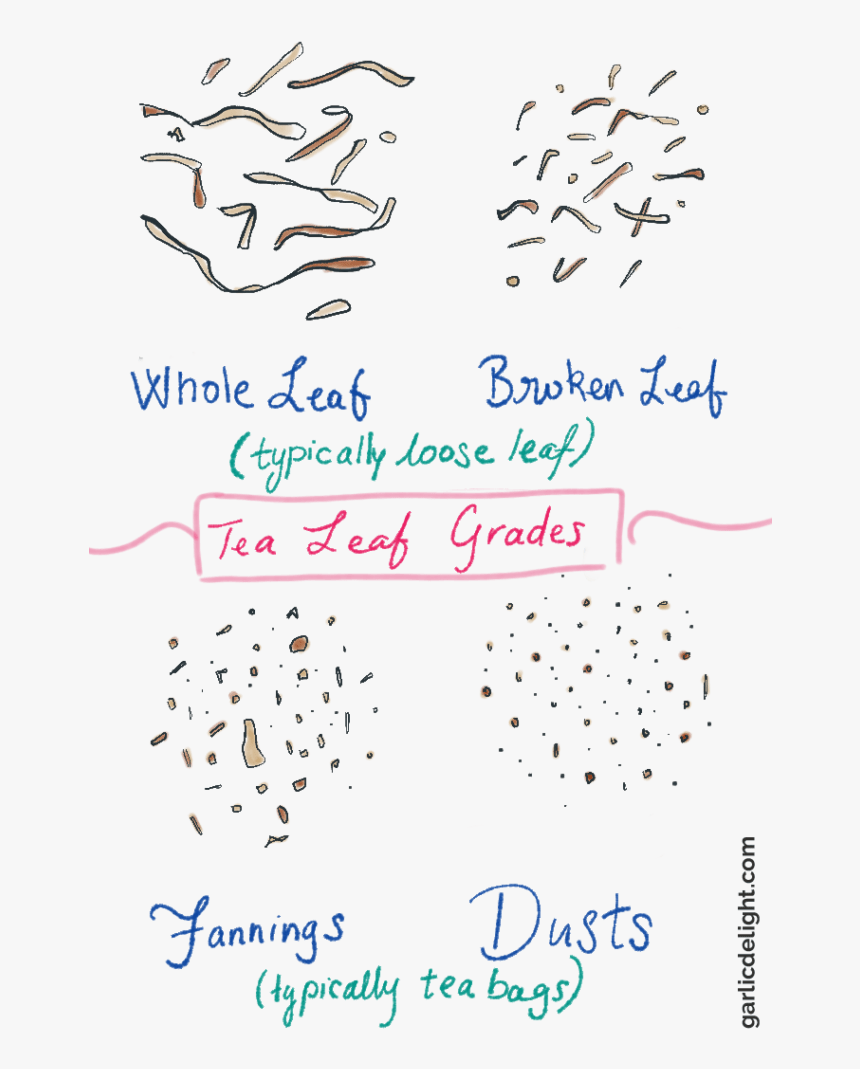 Whole Leaf
Broken Leaf
(typically loose leaf)
Tea Leaf Grades
Fannings
Dusts
(typically tea bags)
garlicdelight.com